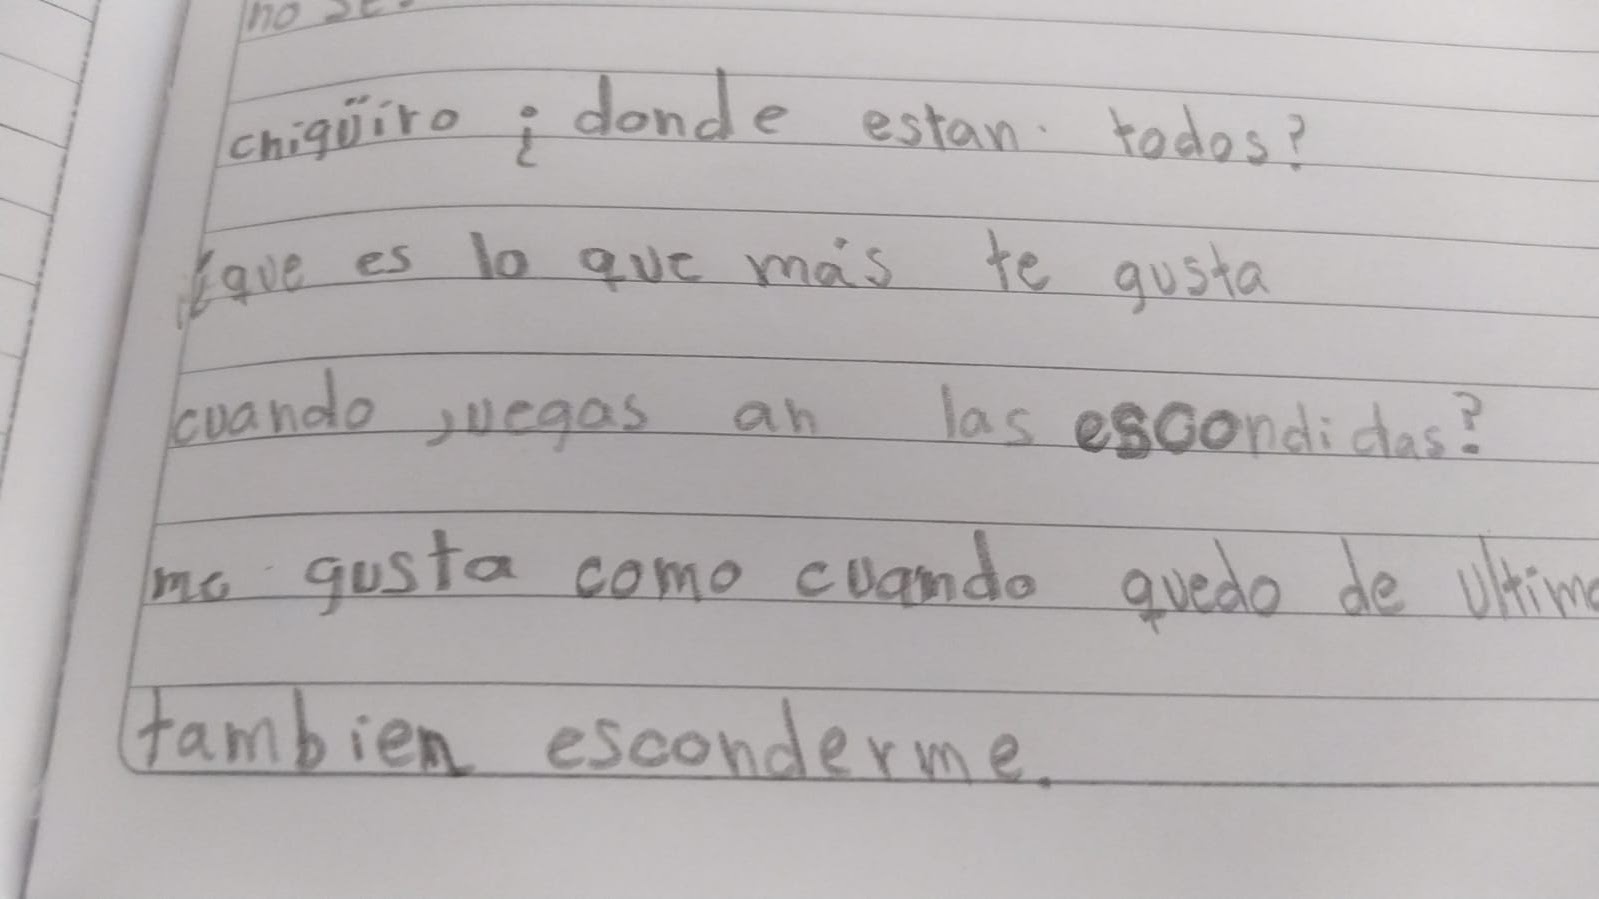 no se.
chigüiro ¿donde estan. todos?
¿que es lo que más te gusta
cuando juegas an las escondidas?
me gusta como cuando quedo de ultimo
tambien esconderme.